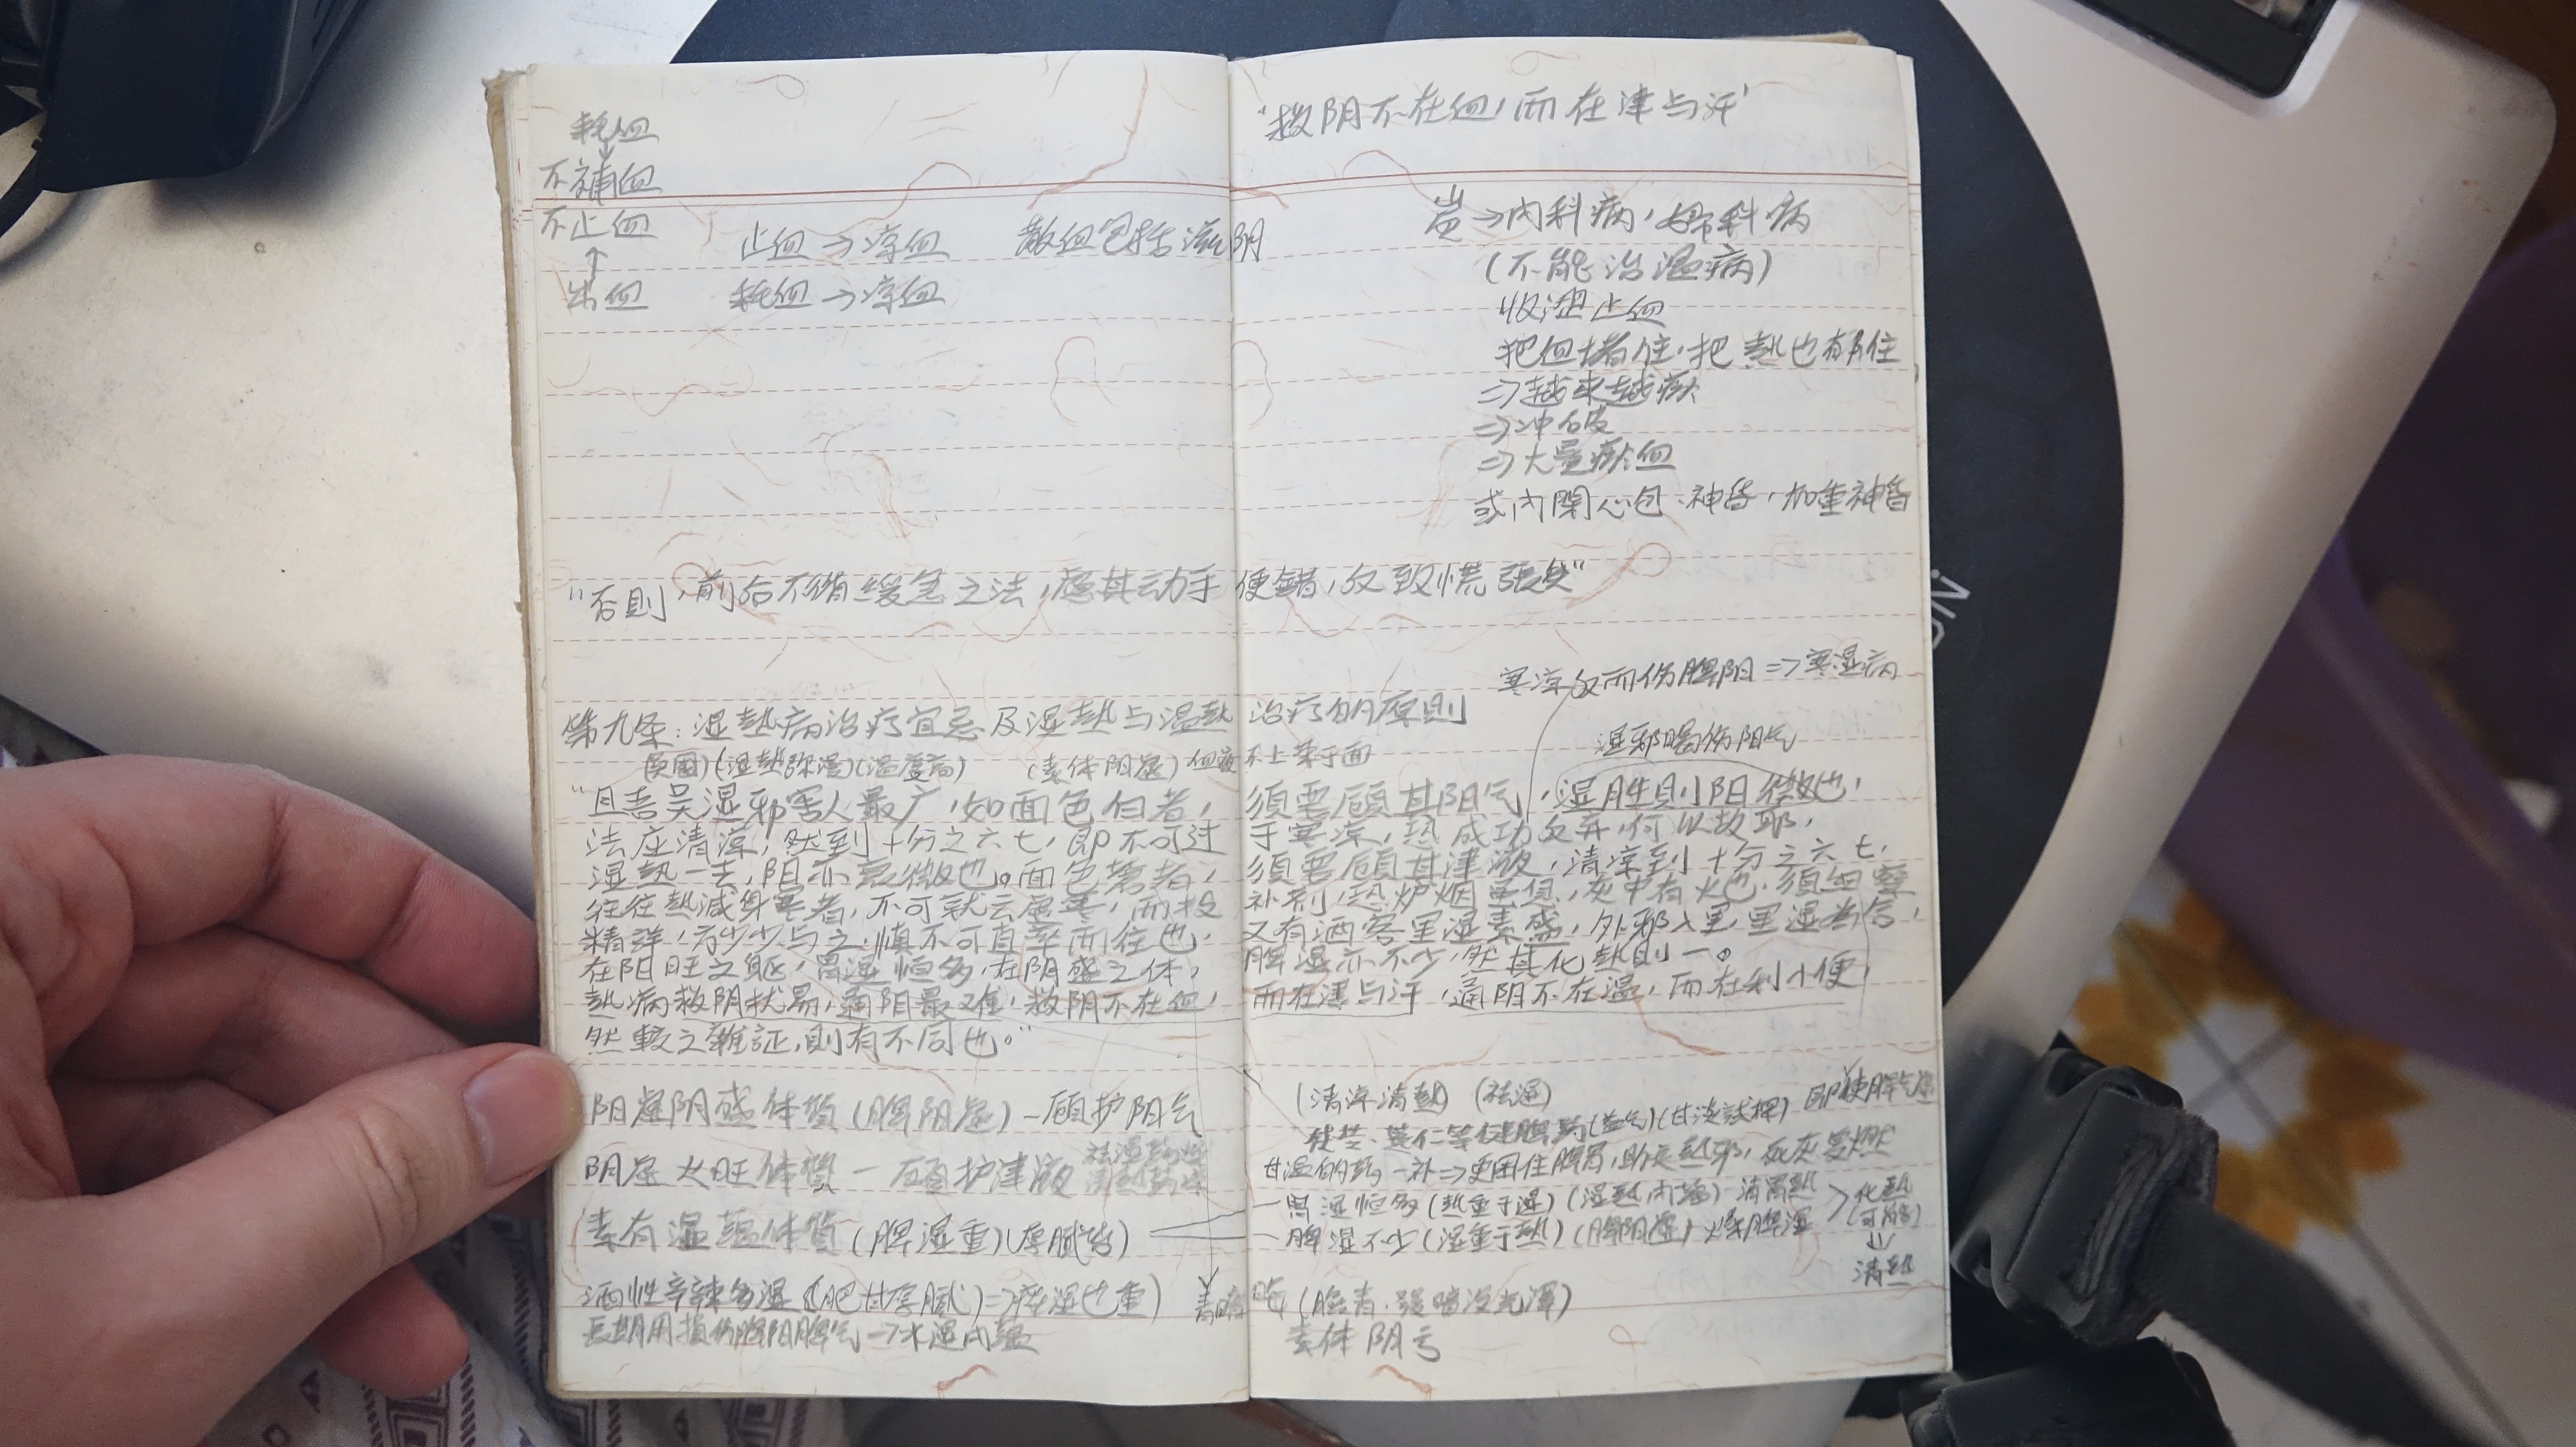 “救阴不在血，而在津与汗”
耗血
↓
不補血
不止血
↑
出血
止血→凉血 散血包括滋阴
耗血→凉血
炭→内科病，婦科病
(不能治温病)
收涩止血
把血堵住，把熱也堵住
⇒越来越瘀
⇒冲破
⇒大量瘀血
或内閉心包、神昏，加重神昏
“否則，前后不循緩急之法，慮其动手便錯，反致慌張矣”
寒凉反而伤脾阳⇒寒湿病
第九条：湿熱病治疗宜忌及湿熱与温熱治疗的原則
(湿熱弥漫) (素体阳虚) 血液不上荣于面
湿邪易伤阳气
“且吾吴湿邪害人最广，如面色白者，須要顾其阳气，湿胜則阳微也，
法应清凉，然到十分之六七，即不可过于寒凉，恐成功反弃，何以故耶，
湿熱一去，阳亦衰微也。面色苍者，須要顾其津液，清凉到十分之六七，
往往熱减身寒者，不可就云虚寒，而投补剂，恐炉烟虽息，灰中有火也，須细察
精詳，方少少与之，慎不可直率而往也，又有酒客里湿素盛，外邪入里，里湿为合，
在阳旺之躯，胃湿恒多，在阴盛之体，脾湿亦不少，然其化熱則一。
熱病救阴犹易，通阳最难，救阴不在血，而在津与汗，通阳不在温，而在利小便，
然較之雜証，則有不同也。”
阳虚阴盛体質(脾阳虚)－顾护阳气
(清凉清熱) (祛湿)
茯苓、薏仁等健脾药(益气)(甘淡
阴虚火旺体質－顾护津液
甘温的药－补⇒更困住脾胃，助長熱邪，死灰复燃
素有湿蕴体質(脾湿重)(厚腻苔)
－胃湿恒多(熱重于湿)(湿熱内蕴)－清胃熱
－脾湿不少(湿重于熱)(脾阳虚)－燥脾湿
>化熱
↓
清熱
酒性辛辣多湿(肥甘厚腻)⇒痰湿也重)
長期用損伤脾阳脾气→水湿内蕴
青暗晦(脸青，發暗没光澤)
素体阴亏